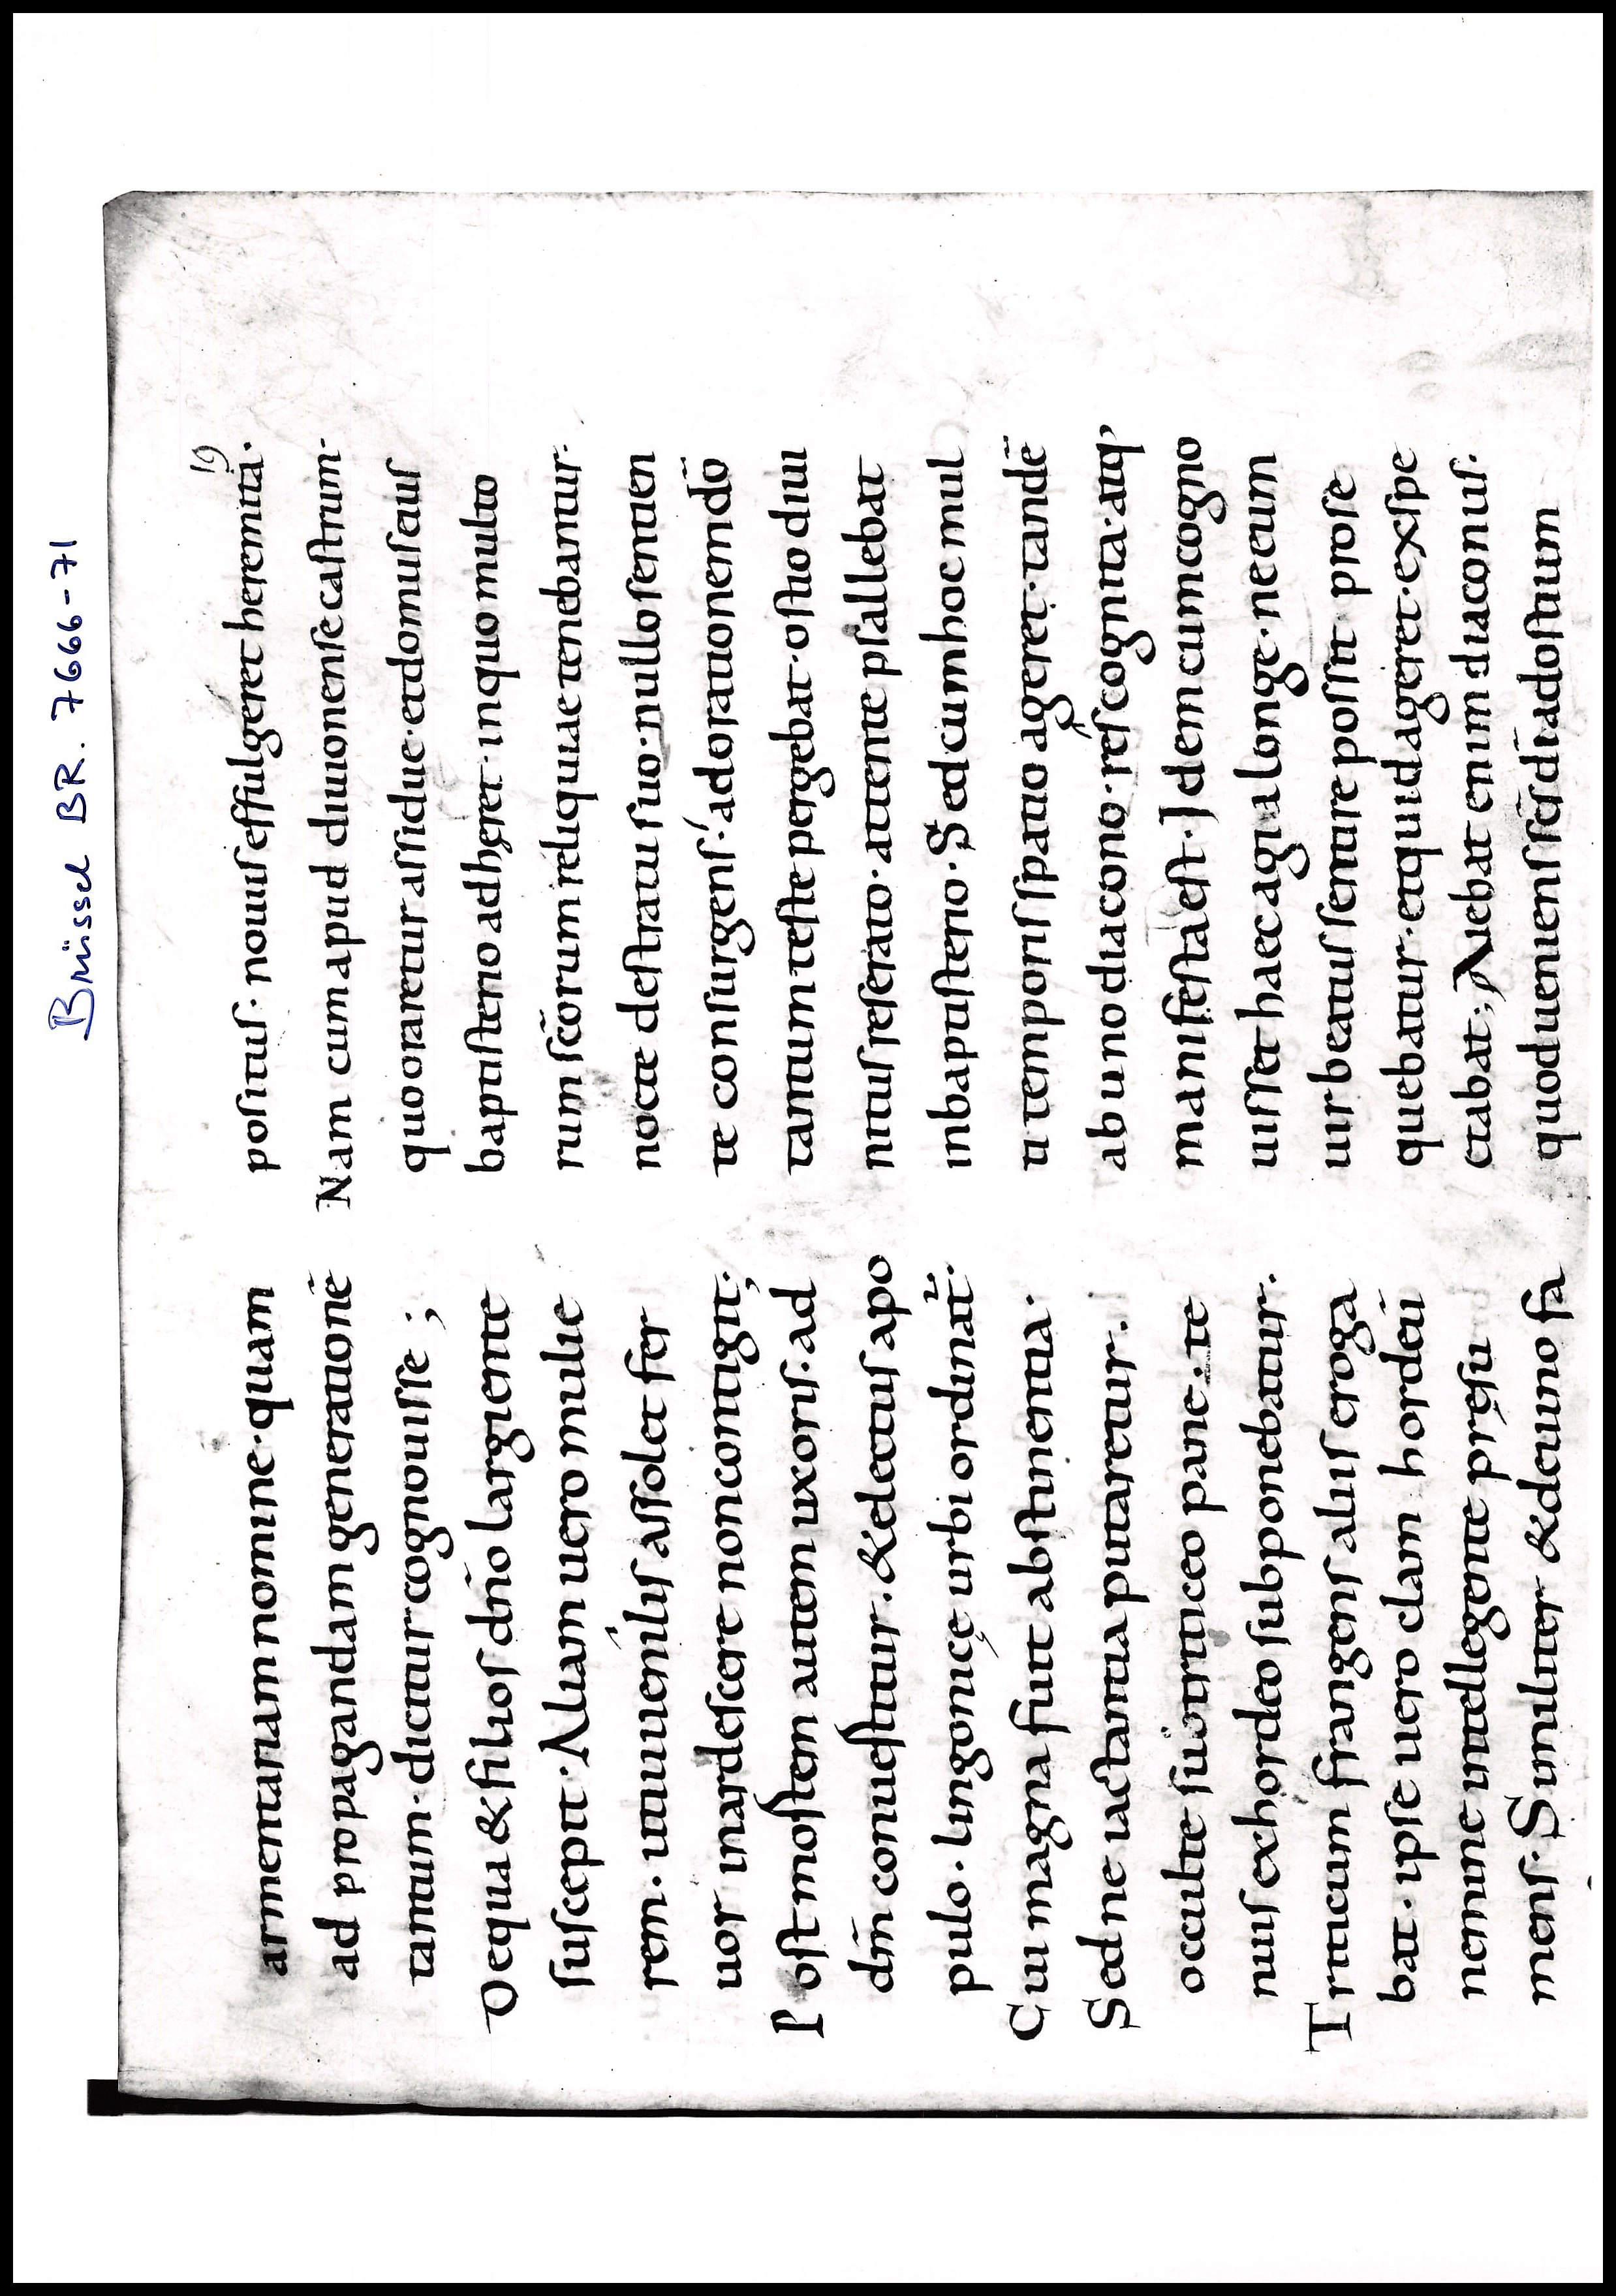 Brüssel BR. 7666-71
armentariam nomine· quam
ad propagandam generationē
tantum· dicitur cognouisse ;
De qua & filios dn̄o largiente
suscepit· Aliam uero mulie
rem· uti iuuenilis assolet fer
uor inardescere non contigit;
Post mostem autem uxoris· ad
dm̄ conuestitur· & electus apo
pulo· lingonicę urbi ordinat̄·
Cui magna fuit abstinentia·
Sed ne iactantia putaretur·
occulte sui triticeo pane· te
nuis ex hordeo subponebatur·
Triticum frangens aliis eroga
bat· ipse uero clam hordeū
nemine intellegente pręsu
mens· Similiter & de uino fa
19
positus· nouus effulgeret heremita·
Nam cum apud diuionense castrum·
quo oraretur assidue· et domus eius
baptisterio adhęret· in quo multo
rum scōrum reliquiae tenebantur·
nocte de stratu suo· nullo sentien
te consurgens· ad orationem dō
tantum teste pergebat· ostio diui
nitus reserato· attente psallebat
in baptisterio· Sed cum hoc mul
ti temporis spatio ageret· tandē
ab uno diacono· res cognita· atq'
manifesta est· Idem cum cogno
uisset haec agi a longe· ne eum
uir beatus sentire possit· prose
quebatur· et quid ageret· exspe
ctabat; Aiebat enim diaconus·
quod ueniens scs̄ dī ad ostium